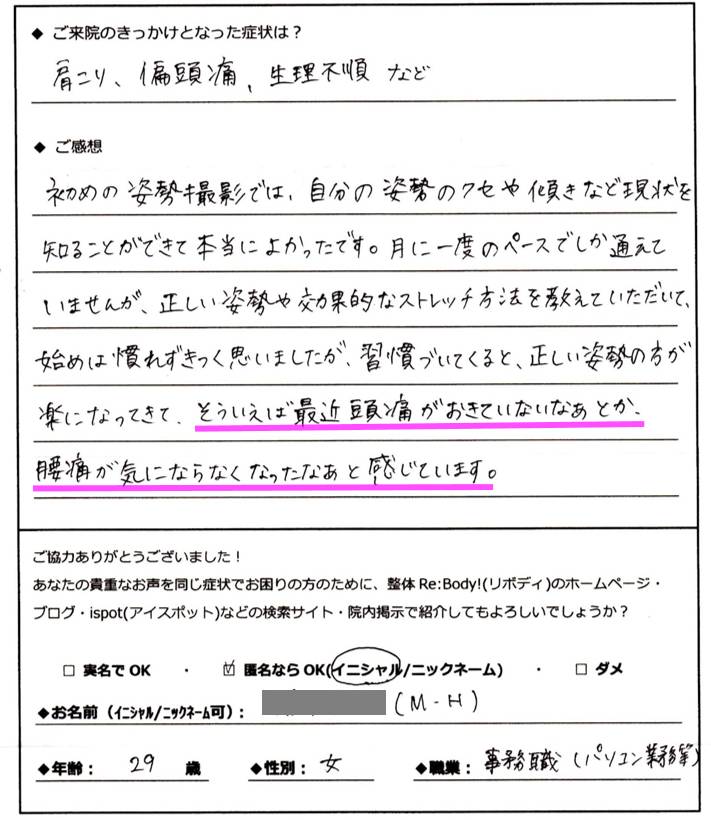 ◆ ご来院のきっかけとなった症状は？
肩こり、偏頭痛、生理不順 など
◆ ご感想
初めの姿勢撮影では、自分の姿勢のクセや傾きなど現状を
知ることができて本当によかったです。月に一度のペースでしか通えて
いませんが、正しい姿勢や効果的なストレッチ方法を教えていただいて、
始めは慣れずきつく思いましたが、習慣づいてくると、正しい姿勢の方が
楽になってきて、そういえば最近頭痛がおきていないなぁとか、
腰痛が気にならなくなったなぁと感じています。
ご協力ありがとうございました！
あなたの貴重なお声を同じ症状でお困りの方のために、整体 Re:Body!(リボディ)のホームページ・
ブログ・ispot(アイスポット)などの検索サイト・院内掲示で紹介してもよろしいでしょうか？
□ 実名で OK ・ ☑ 匿名なら OK(イニシャル/ニックネーム) ・ □ ダメ
◆お名前（ｲﾆｼｬﾙ/ﾆｯｸﾈｰﾑ可）： (M-H)
◆年齢： 29 歳 ◆性別： 女 ◆職業： 事務職（パソコン業務等）